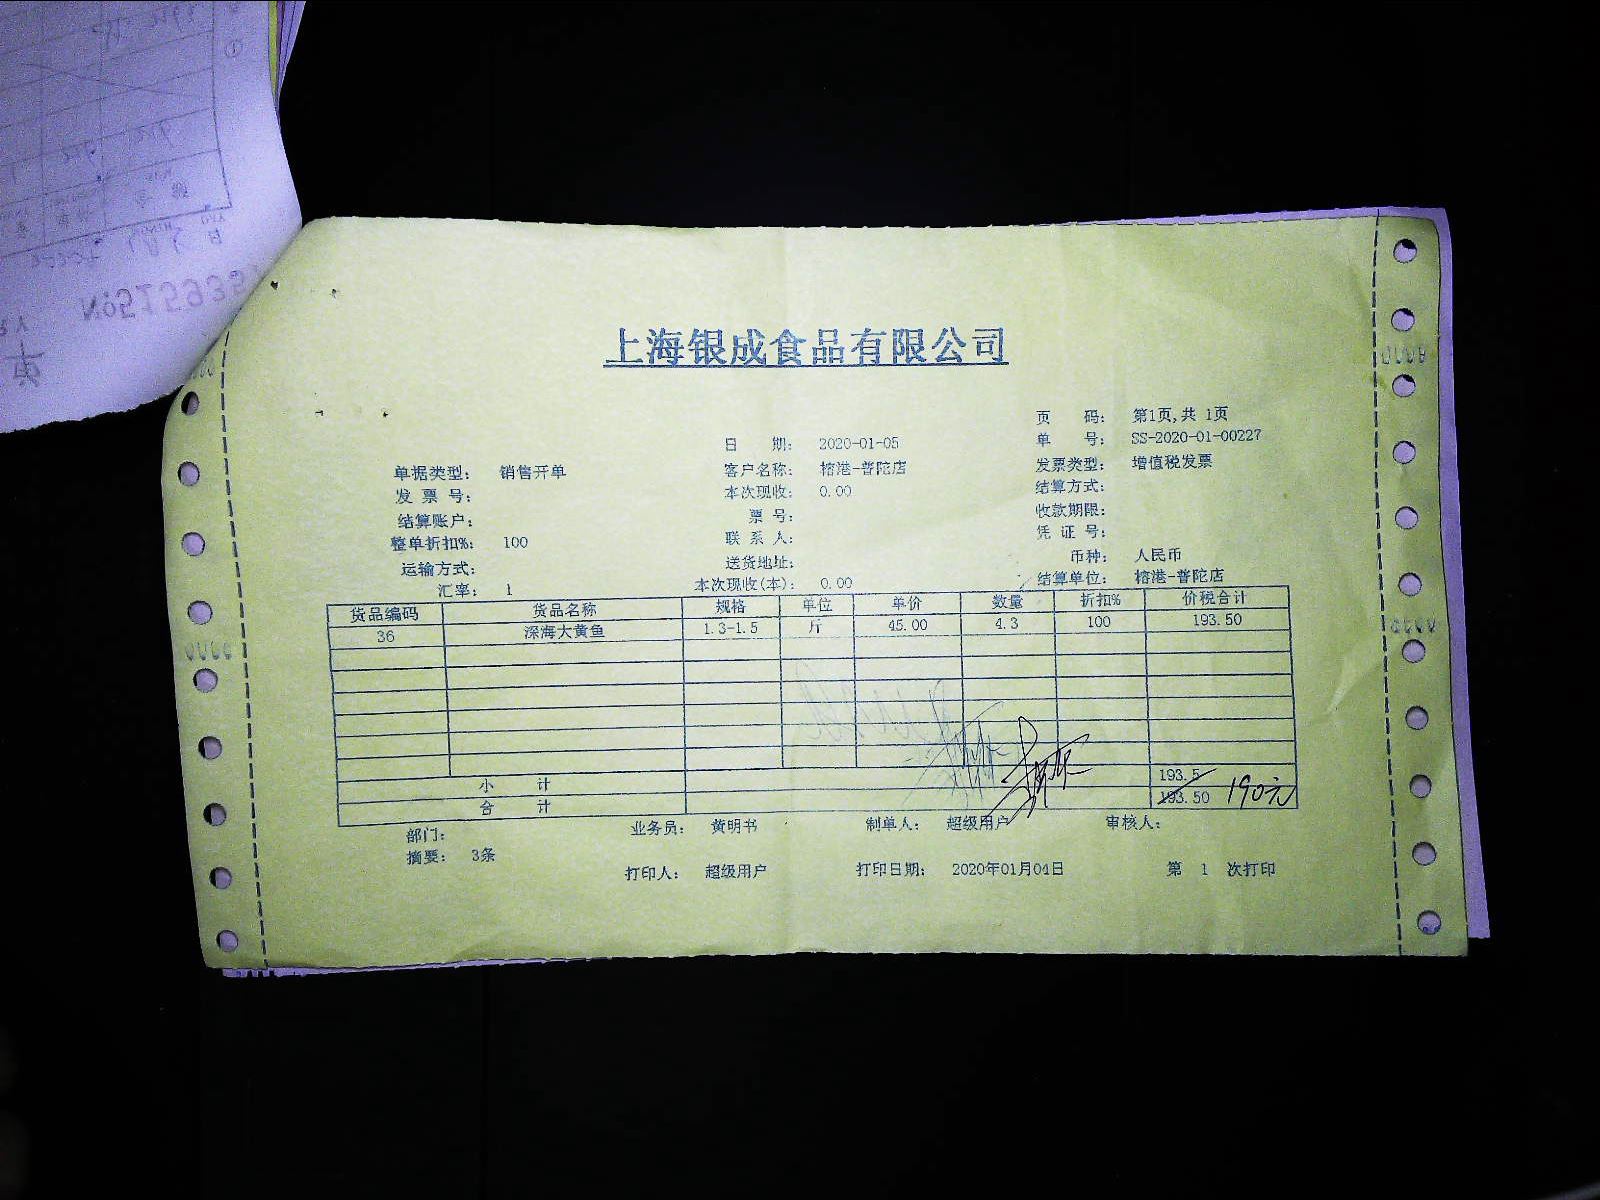 №515932
上海银成食品有限公司
页 码: 第1页,共 1页
日 期: 2020-01-05 单 号: SS-2020-01-00227
单据类型: 销售开单 客户名称: 榕港-普陀店 发票类型: 增值税发票
发 票 号: 本次现收: 0.00 结算方式:
结算账户: 票 号: 收款期限:
整单折扣%: 100 联 系 人: 凭 证 号:
运输方式: 送货地址: 币种: 人民币
汇率: 1 本次现收(本): 0.00 结算单位: 榕港-普陀店
货品编码 货品名称 规格 单位 单价 数量 折扣% 价税合计
36 深海大黄鱼 1.3-1.5 斤 45.00 4.3 100 193.50
小 计 193.5
合 计 193.50 190元
部门: 业务员: 黄明书 制单人: 超级用户 审核人:
摘要: 3条
打印人: 超级用户 打印日期: 2020年01月04日 第 1 次打印